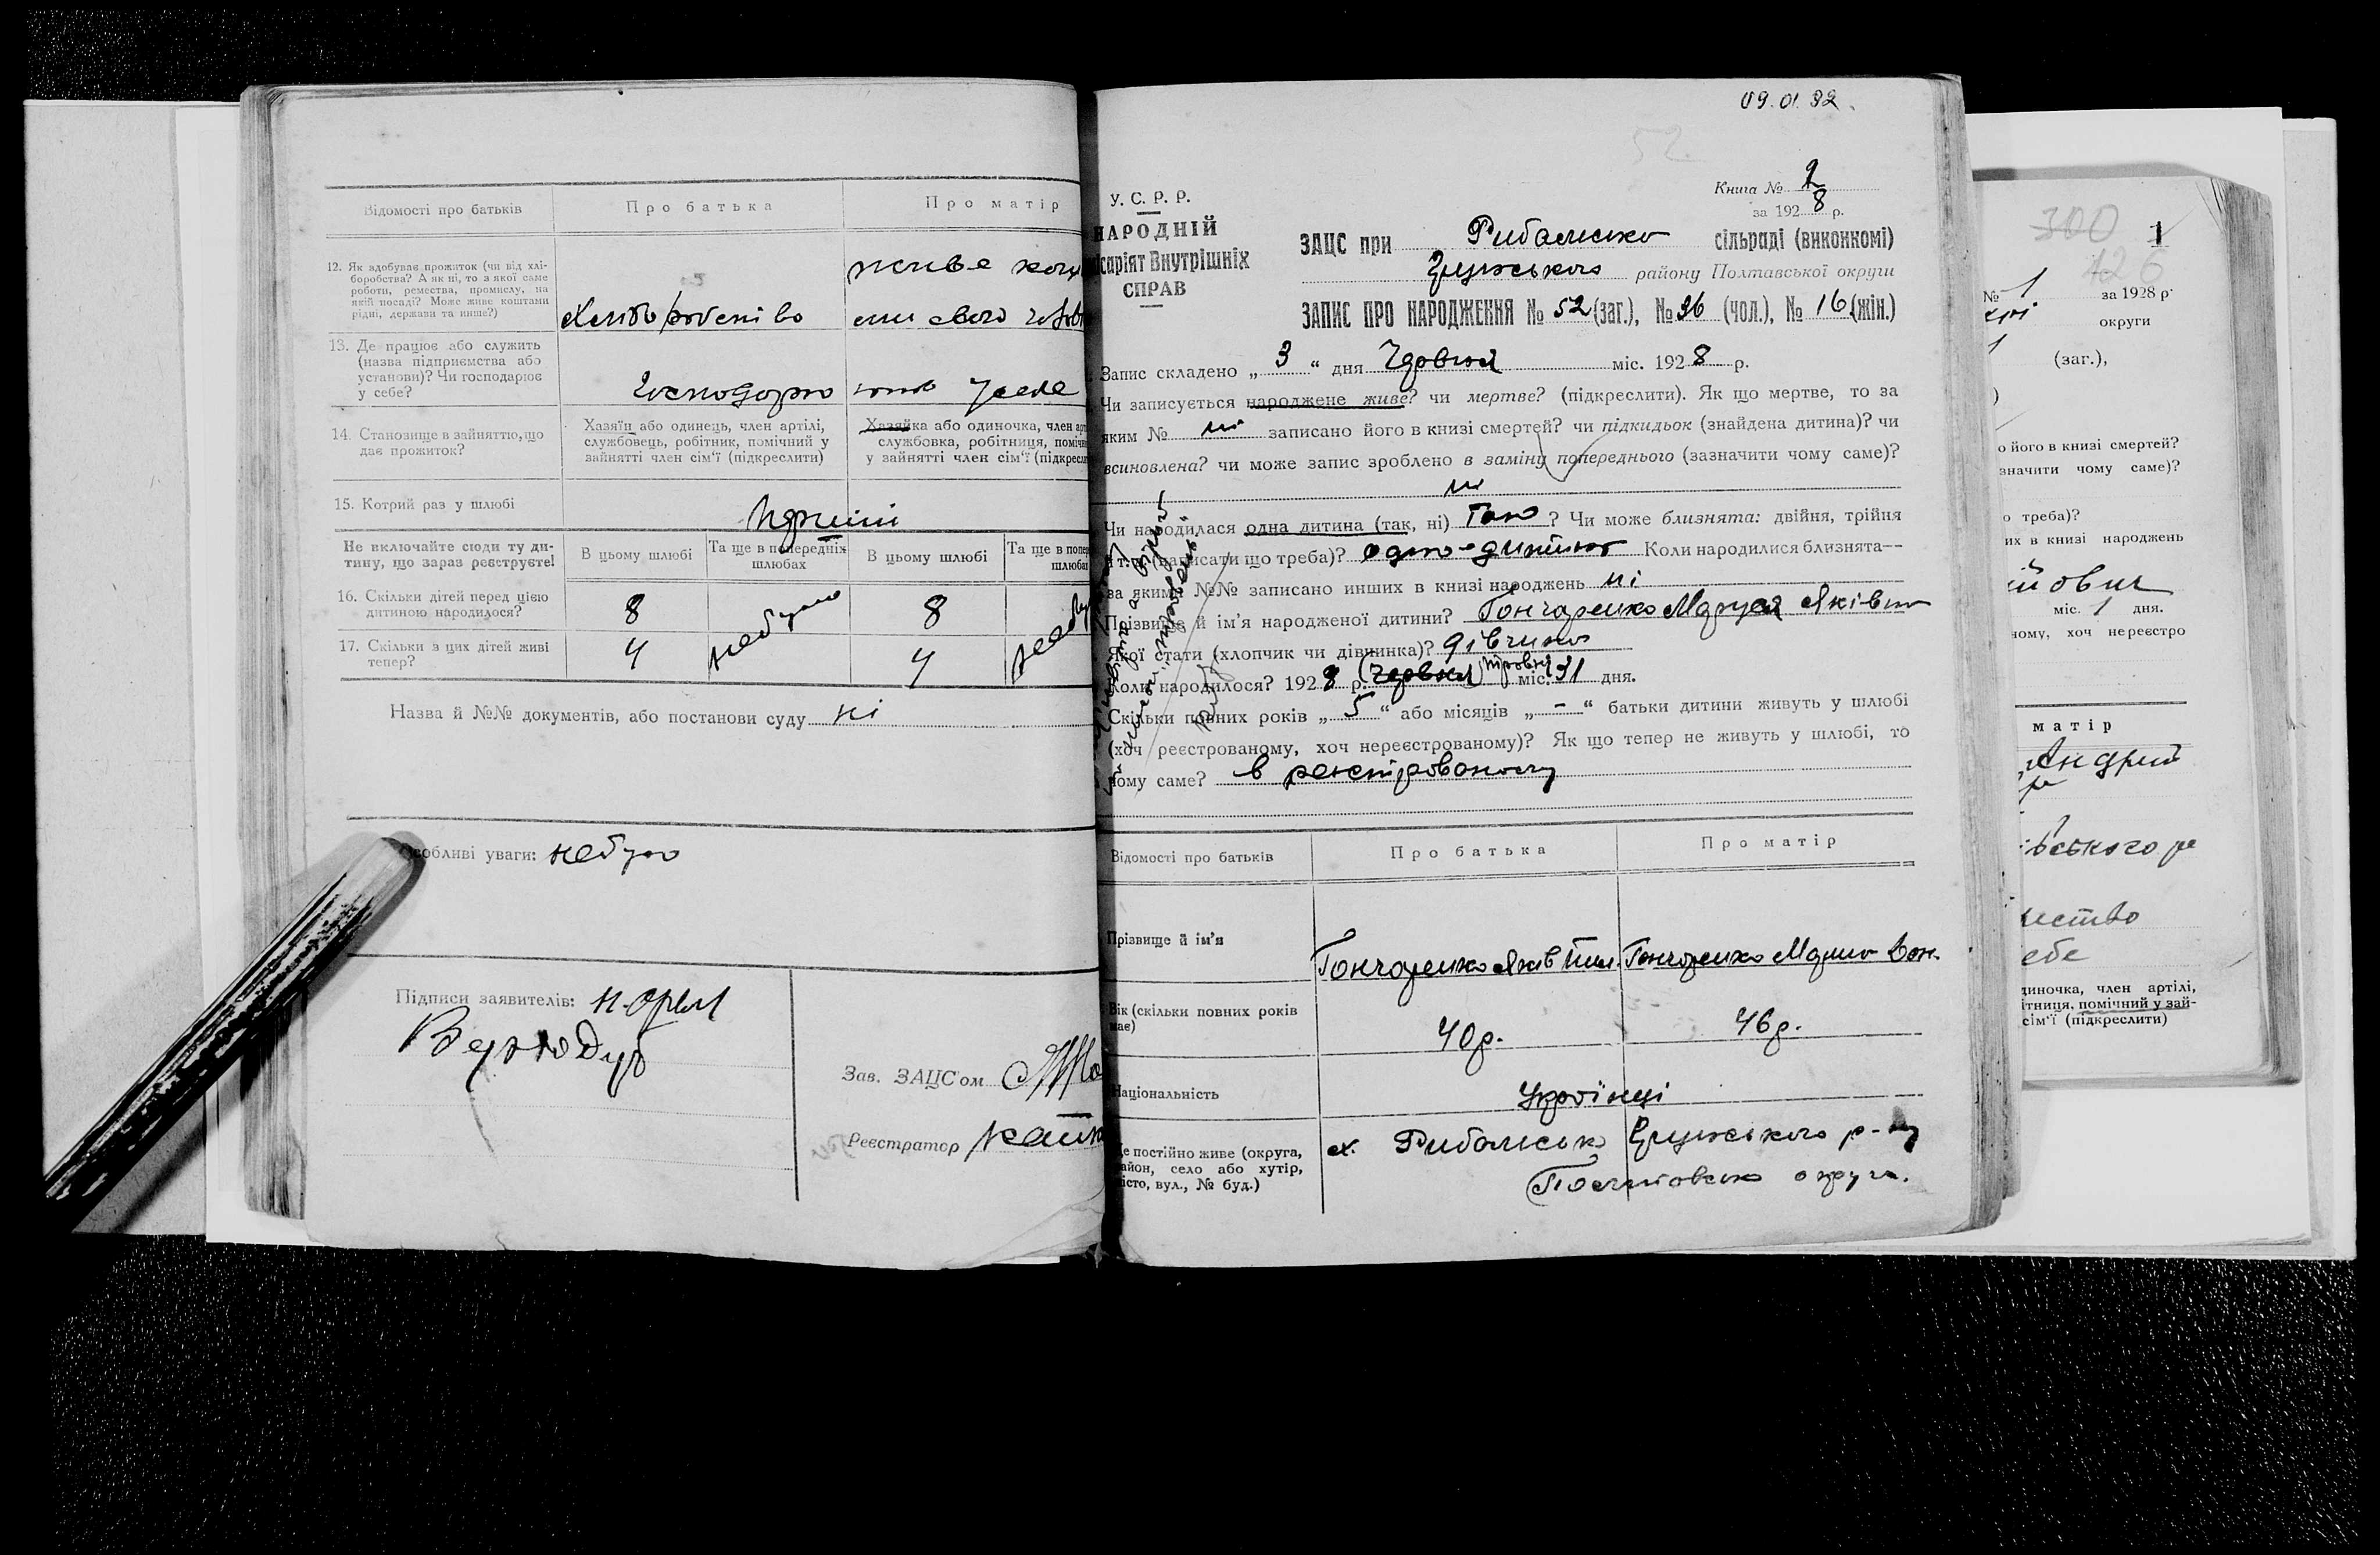 Відомості про батьків
Про батька
Про матір
12. Як здобуває прожиток (чи від хлі-
боробства? А як ні, то з якої саме
роботи, ремества, промислу, на
якій посаді? Може живе коштами
рідні, держави та инше?)
Хліборобство
живе кошт
ами свого чолов
13. Де працює або служить
(назва підприємства або
установи)? Чи господарює
у себе?
Господарює
у себе
14. Становище в зайняттю, що
дає прожиток?
Хазяїн або одинець, член артілі,
службовець, робітник, помічний у
зайнятті член сім'ї (підкреслити)
Хазяйка або одиночка, член арт
службовка, робітниця, поміч
у зайнятті член сім'ї (підкресл
15. Котрий раз у шлюбі
Не включайте сюди ту ди-
тину, що зараз реєструєте!
В цьому шлюбі
Та ще в попередніх
шлюбах
В цьому шлюбі
Та ще в попе
шлюба
16. Скільки дітей перед цією
дитиною народилося?
8
небуло
8
17. Скільки з цих дітей живі
тепер?
4
4
Назва й №№ документів, або постанови суду ні
Особливі уваги: небуло
Підписи заявителів:
Зав. ЗАЦС'ом
Реєстратор
09.01.32.
52
Книга № 2
за 1928 р.
У. С. Р. Р.
НАРОДНІЙ
ісаріят Внутрішніх
СПРАВ
ЗАЦС при Рибальсько сільраді (виконкомі)
району Полтавської округи
ЗАПИС ПРО НАРОДЖЕННЯ № 52 (заг.), № 36 (чол.), № 16 (жін.)
Запис складено „ 3 “ дня Червня міс. 1928 р.
Чи записується народжене живе? чи мертве? (підкреслити). Як що мертве, то за
яким № ні записано його в книзі смертей? чи підкидьок (знайдена дитина)? чи
всиновлена? чи може запис зроблено в заміну попереднього (зазначити чому саме)?
ні
Чи народилася одна дитина (так, ні) Так ? Чи може близнята: двійня, трійня
і т. (написати що треба)? одна дитина Коли народилися близнята—
за якими №№ записано инших в книзі народжень ні
Прізвище й ім'я народженої дитини? Гончаренко Маруся Яківна
Якої стати (хлопчик чи дівчинка)? дівчинка
Коли народилося? 1928 р. (Червня) міс. 31 дня.
Скільки повних років „ 5 “ або місяців „ - “ батьки дитини живуть у шлюбі
(хоч реєстрованому, хоч нереєстрованому)? Як що тепер не живуть у шлюбі, то
чому саме? в реєстрованому
Відомості про батьків
Про батька
Про матір
Прізвище й ім'я
Гончаренко Яків
Гончаренко
Вік (скільки повних років
має)
40р.
46р.
Національність
Українці
Де постійно живе (округа,
район, село або хутір,
місто, вул., № буд.)
х. Рибальсько р-ну
Полтавсько округи.
300
1
426
№ 1 за 1928 р.
округи
(заг.),
о його в книзі смертей?
значити чому саме)?
о треба)?
их в книзі народжень
міс. 1 дня.
ному, хоч нереєстро
матір
вського
ебе
диночка, член артілі,
ітниця, помічний у зай-
сім'ї (підкреслити)